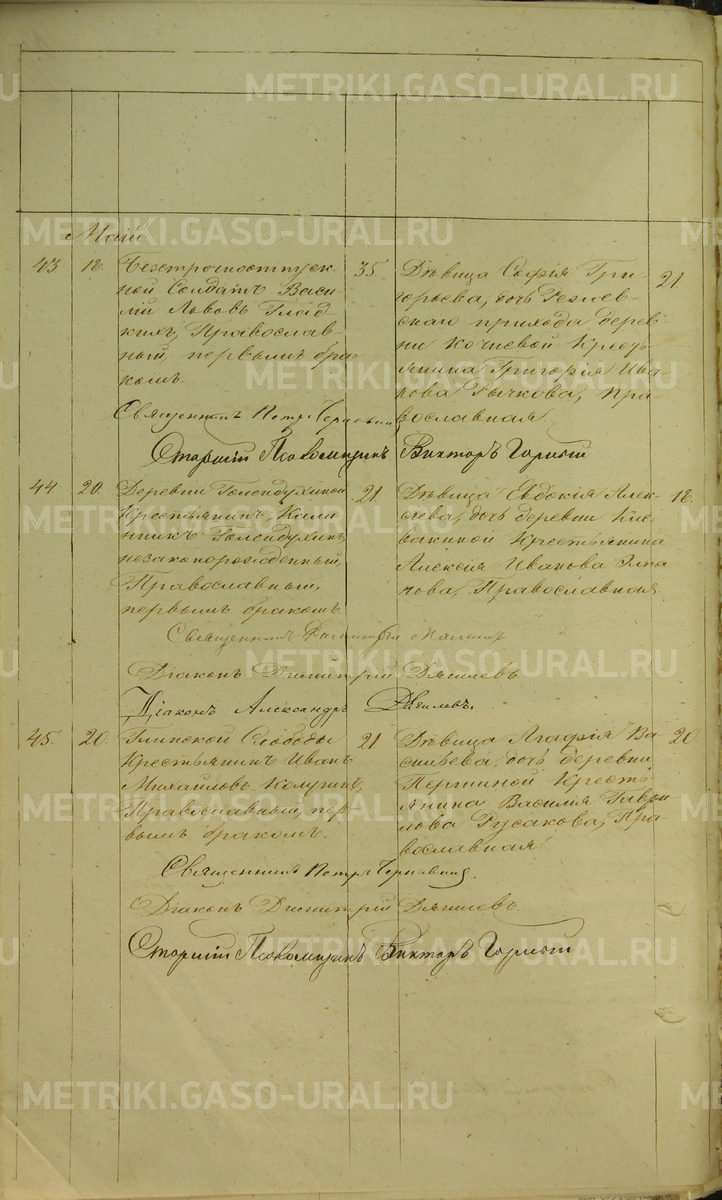 Май
43 18. Безсрочноотпуск-
ной Солдатъ Васи-
лій Львовъ Глад
кихъ, Православ-
ный, первымъ бра-
комъ.
35.
Дѣвица Софія Гри-
горьева, дочь
скаго прихода дерев
ни Кочневой Кресть
янина Григорія Ива
нова Бычкова, Пра-
вославная.
21
Священникъ Петръ
Старшій Псаломщикъ Викторъ
44 20. Деревни Голендухиной
Крестьянинъ, Кали
нникъ Голендухинъ,
незаконорожденный,
Православный,
первымъ бракомъ.
21.
Дѣвица Евдокія Алек-
сѣева, дочь деревни
Крестьянина
Алексѣя Иванова
Православная
18.
Священникъ Димитрій
Діаконъ Димитрій
Діаконъ Александръ
45. 20. Глинской Слободы
Крестьянинъ Иванъ
Михайловъ
Православный, пер
вымъ бракомъ.
21
Дѣвица Агафія Ва
сильева, дочь деревни
Першиной Кресть
янина Василія Гаври
лова Русакова, Пра
вославная.
20.
Священникъ Петръ
Діаконъ Димитрій
Старшій Псаломщикъ Викторъ
METRIKI.GASO-URAL.RU